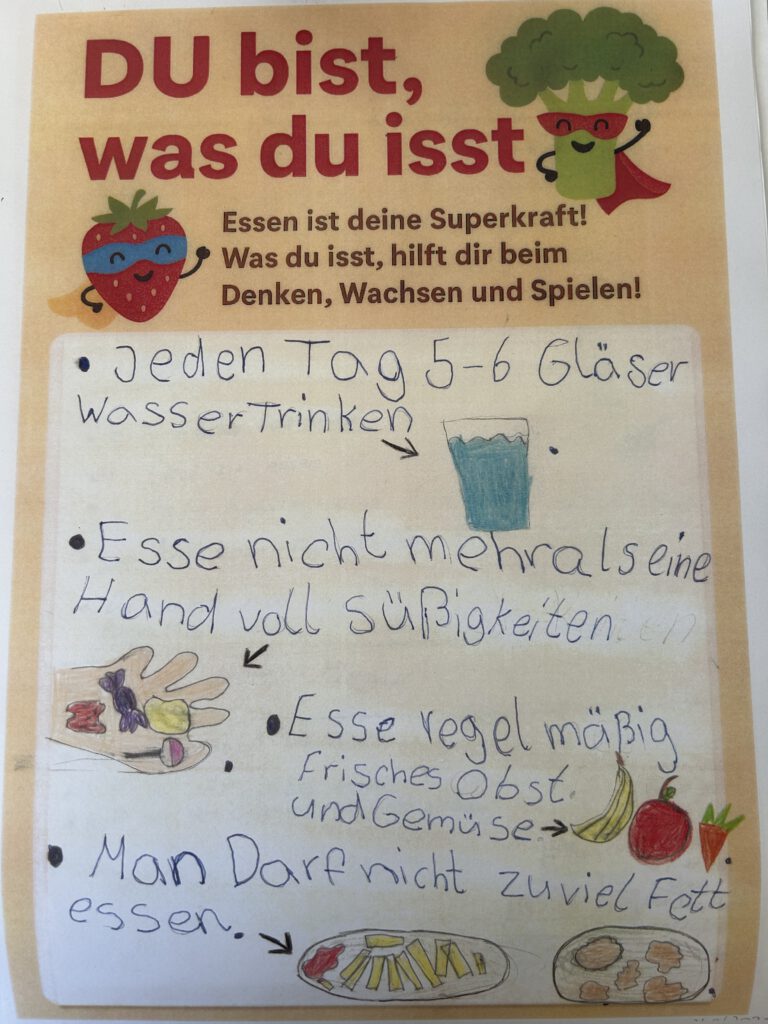 DU bist,
was du isst
Essen ist deine Superkraft!
Was du isst, hilft dir beim
Denken, Wachsen und Spielen!
• Jeden Tag 5-6 Gläser
Wasser Trinken
• Esse nicht mehr als eine
Hand voll süßigkeiten
• Esse regel mäßig
frisches Obst.
und Gemüse.
• Man Darf nicht zuviel Fett
essen.